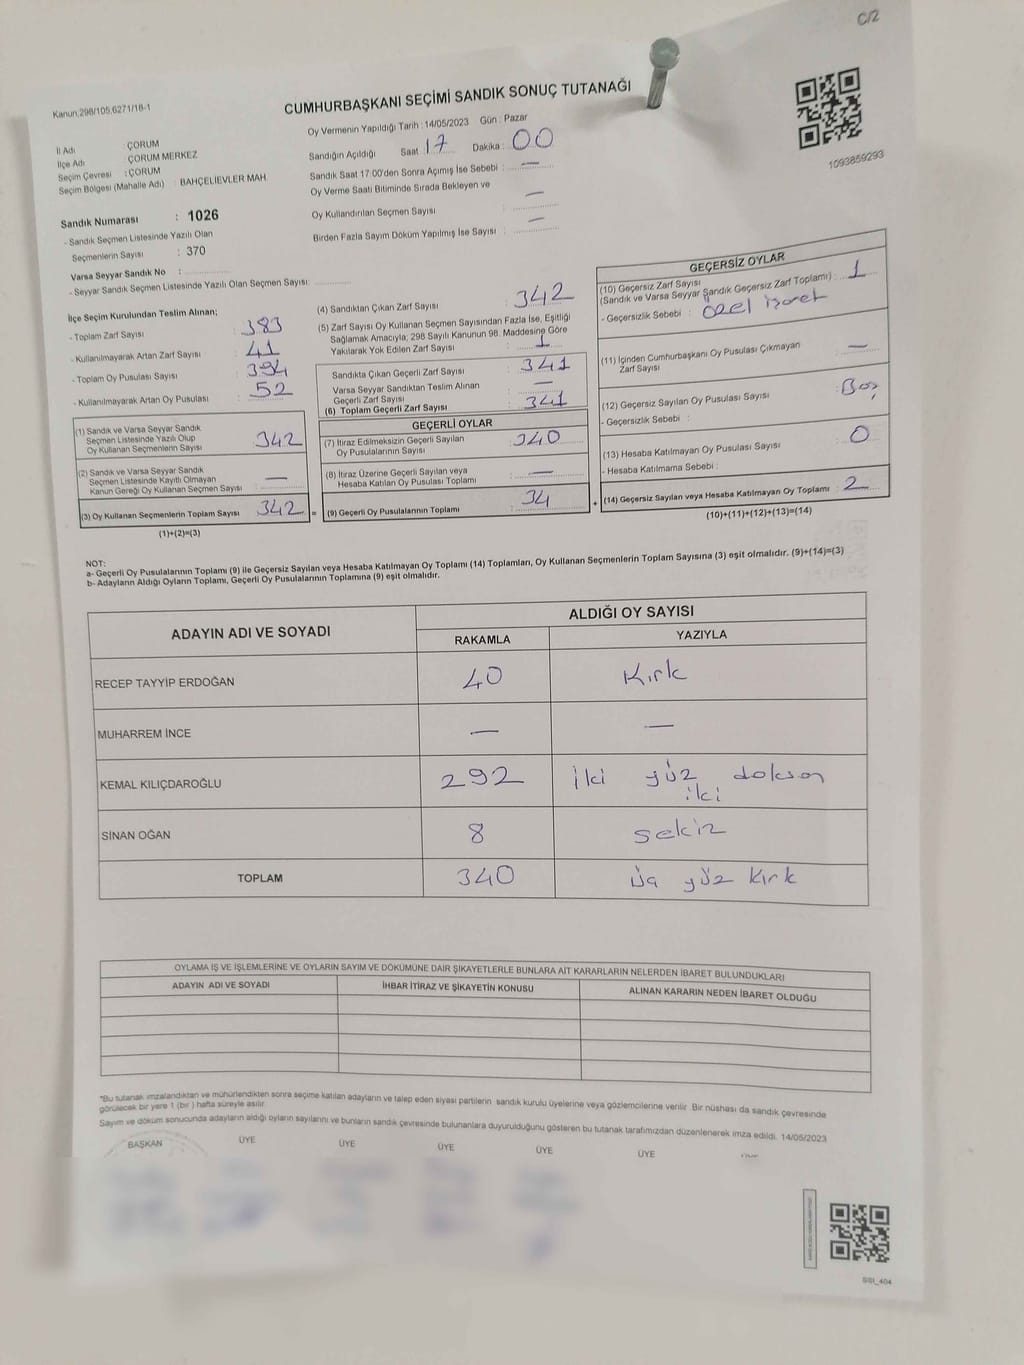 C/2
Kanun,298/105,6271/18-1
CUMHURBAŞKANI SEÇİMİ SANDIK SONUÇ TUTANAĞI
1093859293
İl Adı : ÇORUM
İlçe Adı : ÇORUM MERKEZ
Seçim Çevresi : ÇORUM
Seçim Bölgesi (Mahalle Adı) : BAHÇELİEVLER MAH
Oy Vermenin Yapıldığı Tarih : 14/05/2023 Gün : Pazar
Sandığın Açıldığı Saat : 17 Dakika : 00
Sandık Saat 17:00'den Sonra Açımış İse Sebebi : —
Oy Verme Saati Bitiminde Sırada Bekleyen ve
Oy Kullandırılan Seçmen Sayısı : —
Birden Fazla Sayım Döküm Yapılmış İse Sayısı : —
Sandık Numarası : 1026
- Sandık Seçmen Listesinde Yazılı Olan
Seçmenlerin Sayısı : 370
Varsa Seyyar Sandık No :
- Seyyar Sandık Seçmen Listesinde Yazılı Olan Seçmen Sayısı:
İlçe Seçim Kurulundan Teslim Alınan;
- Toplam Zarf Sayısı : 383
- Kullanılmayarak Artan Zarf Sayısı : 41
- Toplam Oy Pusulası Sayısı : 394
- Kullanılmayarak Artan Oy Pusulası : 52
(1) Sandık ve Varsa Seyyar Sandık
Seçmen Listesinde Yazılı Olup
Oy Kullanan Seçmenlerin Sayısı : 342
(2) Sandık ve Varsa Seyyar Sandık
Seçmen Listesinde Kayıtlı Olmayan
Kanun Gereği Oy Kullanan Seçmen Sayısı : —
(3) Oy Kullanan Seçmenlerin Toplam Sayısı : 342 =
(1)+(2)=(3)
(4) Sandıktan Çıkan Zarf Sayısı : 342
(5) Zarf Sayısı Oy Kullanan Seçmen Sayısından Fazla İse, Eşitliği
Sağlamak Amacıyla; 298 Sayılı Kanunun 98. Maddesine Göre
Yakılarak Yok Edilen Zarf Sayısı : 1
Sandıkta Çıkan Geçerli Zarf Sayısı : 341
Varsa Seyyar Sandıktan Teslim Alınan
Geçerli Zarf Sayısı : —
(6) Toplam Geçerli Zarf Sayısı : 341
GEÇERLİ OYLAR
(7) İtiraz Edilmeksizin Geçerli Sayılan
Oy Pusulalarının Sayısı : 340
(8) İtiraz Üzerine Geçerli Sayılan veya
Hesaba Katılan Oy Pusulası Toplamı : —
(9) Geçerli Oy Pusulalarının Toplamı : 34 +
GEÇERSİZ OYLAR
(10) Geçersiz Zarf Sayısı
(Sandık ve Varsa Seyyar Sandık Geçersiz Zarf Toplamı) : 1
- Geçersizlik Sebebi : Özel işaret
(11) İçinden Cumhurbaşkanı Oy Pusulası Çıkmayan
Zarf Sayısı : —
(12) Geçersiz Sayılan Oy Pusulası Sayısı : Boş
- Geçersizlik Sebebi :
(13) Hesaba Katılmayan Oy Pusulası Sayısı : 0
- Hesaba Katılmama Sebebi :
(14) Geçersiz Sayılan veya Hesaba Katılmayan Oy Toplamı : 2
(10)+(11)+(12)+(13)=(14)
NOT:
a- Geçerli Oy Pusulalarının Toplamı (9) ile Geçersiz Sayılan veya Hesaba Katılmayan Oy Toplamı (14) Toplamları, Oy Kullanan Seçmenlerin Toplam Sayısına (3) eşit olmalıdır. (9)+(14)=(3)
b- Adayların Aldığı Oyların Toplamı, Geçerli Oy Pusulalarının Toplamına (9) eşit olmalıdır.
ADAYIN ADI VE SOYADI ALDIĞI OY SAYISI
RAKAMLA YAZIYLA
RECEP TAYYİP ERDOĞAN 40 Kırk
MUHARREM İNCE — —
KEMAL KILIÇDAROĞLU 292 İki yüz doksan iki
SİNAN OĞAN 8 sekiz
TOPLAM 340 üç yüz kırk
OYLAMA İŞ VE İŞLEMLERİNE VE OYLARIN SAYIM VE DÖKÜMÜNE DAİR ŞİKAYETLERLE BUNLARA AİT KARARLARIN NELERDEN İBARET BULUNDUKLARI
ADAYIN ADI VE SOYADI İHBAR İTİRAZ VE ŞİKAYETİN KONUSU ALINAN KARARIN NEDEN İBARET OLDUĞU
*Bu tutanak imzalandıktan ve mühürlendikten sonra seçime katılan adayların ve talep eden siyasi partilerin sandık kurulu üyelerine veya gözlemcilerine verilir. Bir nüshası da sandık çevresinde
görülecek bir yere 1 (bir) hafta süreyle asılır.
Sayım ve döküm sonucunda adayların aldığı oyların sayılarını ve bunların sandık çevresinde bulunanlara duyurulduğunu gösteren bu tutanak tarafımızdan düzenlenerek imza edildi. 14/05/2023
BAŞKAN ÜYE ÜYE ÜYE ÜYE ÜYE
SSI_404